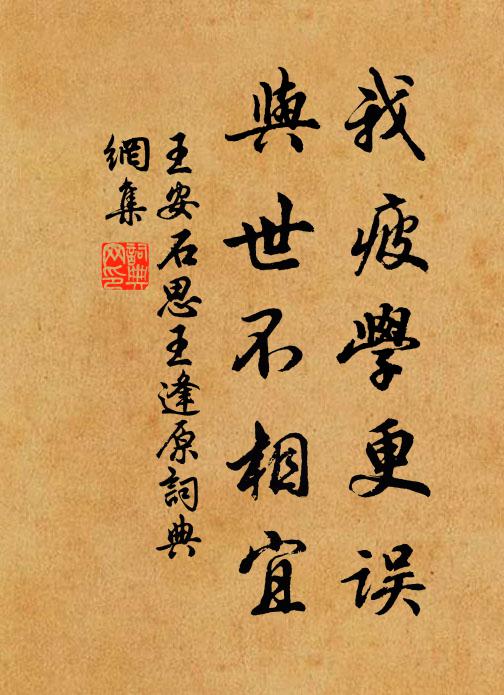 我疲學更误
與世不相宜
王安石思王逢原詞典
網集
詞典
网印